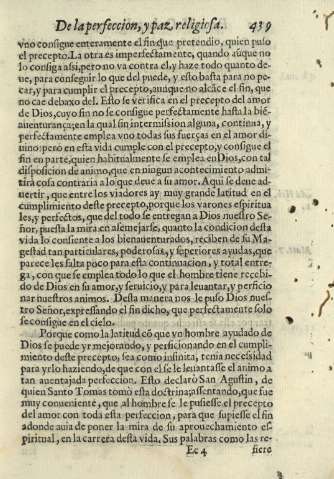 De la perfeccion, y paz religiosa. 439
vno consigue enteramente el fin que pretendio, quien puso
el precepto. La otra es imperfectamente, quando aũque no
lo consiga assi, pero no va contra el, y haze todo quanto de-
ue, para conseguir lo que del puede, y esto basta para no pe-
car, y para cumplir el precepto, aunque no alcãce el fin, que
no cae debaxo del. Esto se verifica en el precepto del amor
de Dios, cuyo fin no se consigue perfectamente hasta la bie-
auenturança; en la qual sin intermission alguna, continua, y
perfectamente emplea vno todas sus fuerças en el amor di-
uino: pero en esta vida cumple con el precepto, y consigue el
fin en parte, quien habitualmente se emplea en Dios, con tal
disposicion de animo, que en ningun acontecimiento admi-
tirà cosa contraria a lo que deue a su amor. Aqui se deue ad-
uertir, que entre los viadores ay muy grande latitud en el
cumplimiento deste precepto, porque los varones espiritua-
les, y perfectos, que del todo se entregan a Dios nuestro Se-
ñor, puesta la mira en asemejarse, quanto la condicion desta
vida lo consiente a los bienauenturados, reciben de su Ma-
gestad tan particulares, poderosas, y superiores ayudas, que
parece les falta poco para esta continuacion, y total entre-
ga, con que se emplea todo lo que el hombre tiene recebi-
do de Dios en su amor, y seruicio, y para leuantar, y perficio
nar nuestros animos. Desta manera nos le puso Dios nues-
tro Señor, expressando el fin dicho, que perfectamente solo
se consigue en el cielo.
Porque como la latitud cõ que vn hombre ayudado de
Dios se puede yr mejorando, y perficionando en el cumpli-
miento deste precepto, sea como infinita, tenia necessidad
para yrlo haziendo, de que con el se le leuantasse el animo a
tan auentajada perfeccion. Esto declarò San Agustin, de
quien Santo Tomas tomò esta doctrina; assentando, que fue
muy conueniente, que al hombre se le pusiesse el precepto
del amor con toda esta perfeccion, para que supiesse el fin
adonde auia de poner la mira de su aprouechamiento es-
piritual, en la carrera desta vida. Sus palabras como las re-
Ee 4 fiere